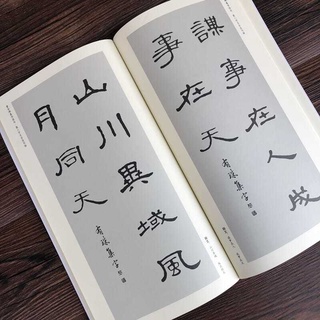 謀事在人成
事在天
集字
山川異域風
月同天
集字